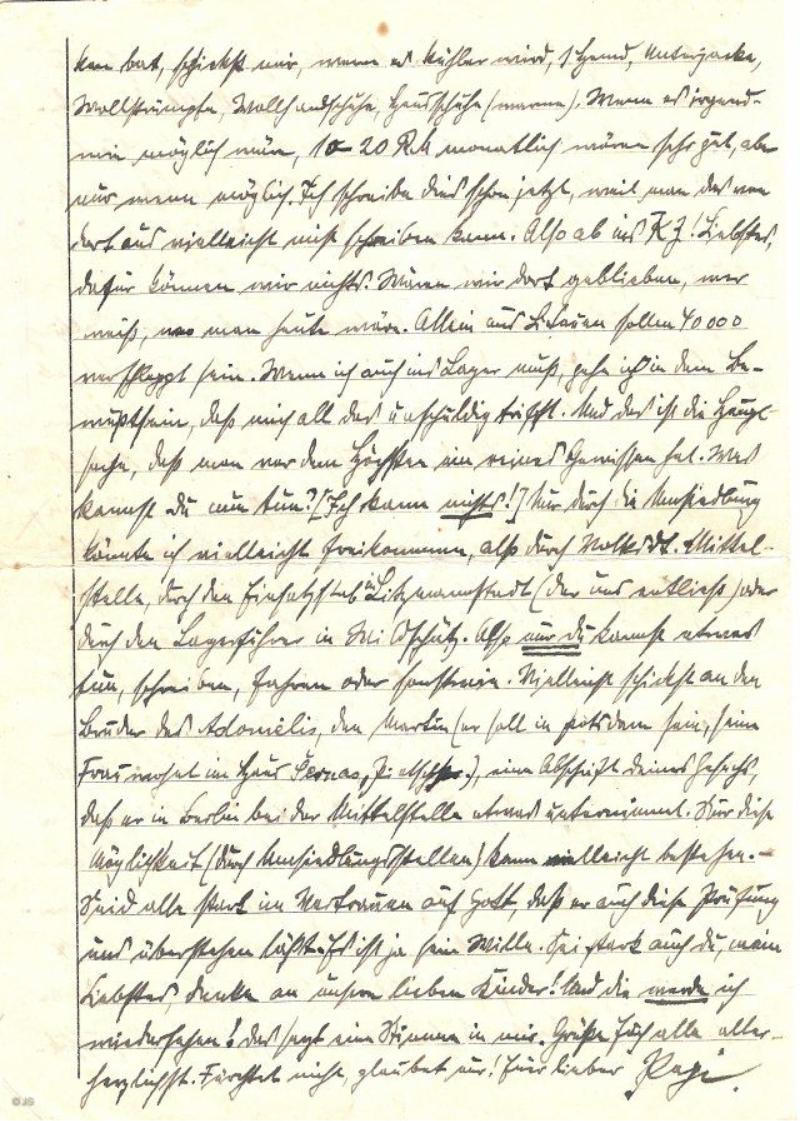 ken bat, schickst mir, wenn es kühler wird, 1 Hemd, Unterjacke,
Wollstrümpfe, Wollhandschuhe, Hausschuhe (warme). Wenn es irgend-
wie möglich wäre, 10-20 R.M monatlich wären sehr gut, aber
nur wenn möglich. Ich schreibe dies schon jetzt, weil man das von
dort aus vielleicht nicht schreiben kann. Also ab ins KZ! Liebstes,
dafür können wir nichts! Wären wir dort geblieben, wer
weiß, wo man heute wäre. Allein aus Litauen sollen 40000
verschleppt sein. Wenn ich auch ins Lager muß, gehe ich in dem Be-
wußtsein, daß mich all das unschuldig trifft. Und das ist die Haupt-
sache, daß man vor dem Höchsten ein reines Gewissen hat. Was
kannst Du nun tun? [Ich kann nichts!] Nur durch die Umsiedlung
könnte ich vielleicht freikommen, also durch Volksdt. Mittel-
stelle, durch den Einsatzstab in Litzmannstadt (der uns entließ) oder
durch den Lagerführer in Wildschütz. Also nur du kannst etwas
tun, schreiben, fahren oder sonstwie. Vielleicht schickst an den
Bruder des Adomėlis, den Martin (er soll in Potsdam sein, seine
Frau wohnt im Haus Šernas, ), eine Abschrift deines Gesuchs,
daß er in Berlin bei der Mittelstelle etwas unternimmt. Nur diese
Möglichkeit (durch Umsiedlungsstellen) kann vielleicht bestehen. –
Seid alle stark im Vertrauen auf Gott, daß er auch diese Prüfung
uns überstehen läßt. Es ist ja sein Wille. Sei stark auch du, mein
Liebstes, denke an unsere lieben Kinder! Und die werde ich
wiedersehen! Das sagt eine Stimme in mir. Grüße Euch alle aller-
herzlichst. Fürchtet nicht, glaubet nur! Euer lieber Papi.